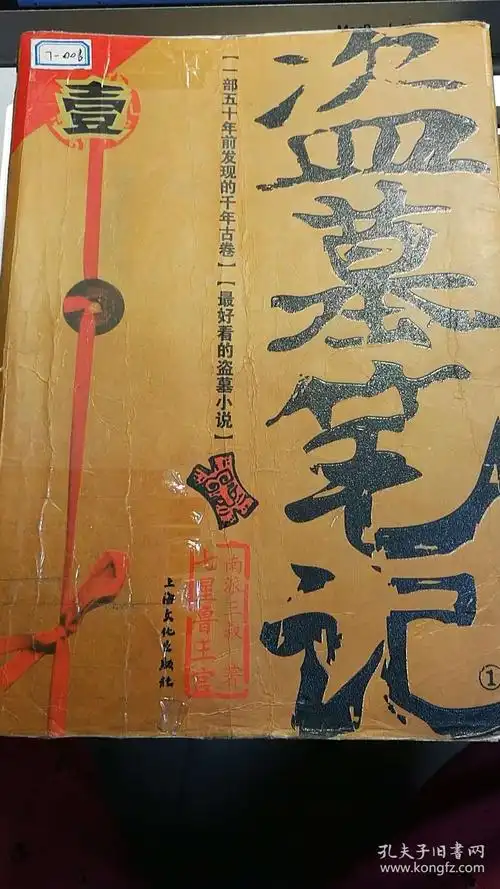 7-006
壹
盗墓笔记
①
【一部五十年前发现的千年古卷】【最好看的盗墓小说】
南派三叔 著
七星鲁王宫
上海文化出版社
孔夫子旧书网
www.kongfz.com